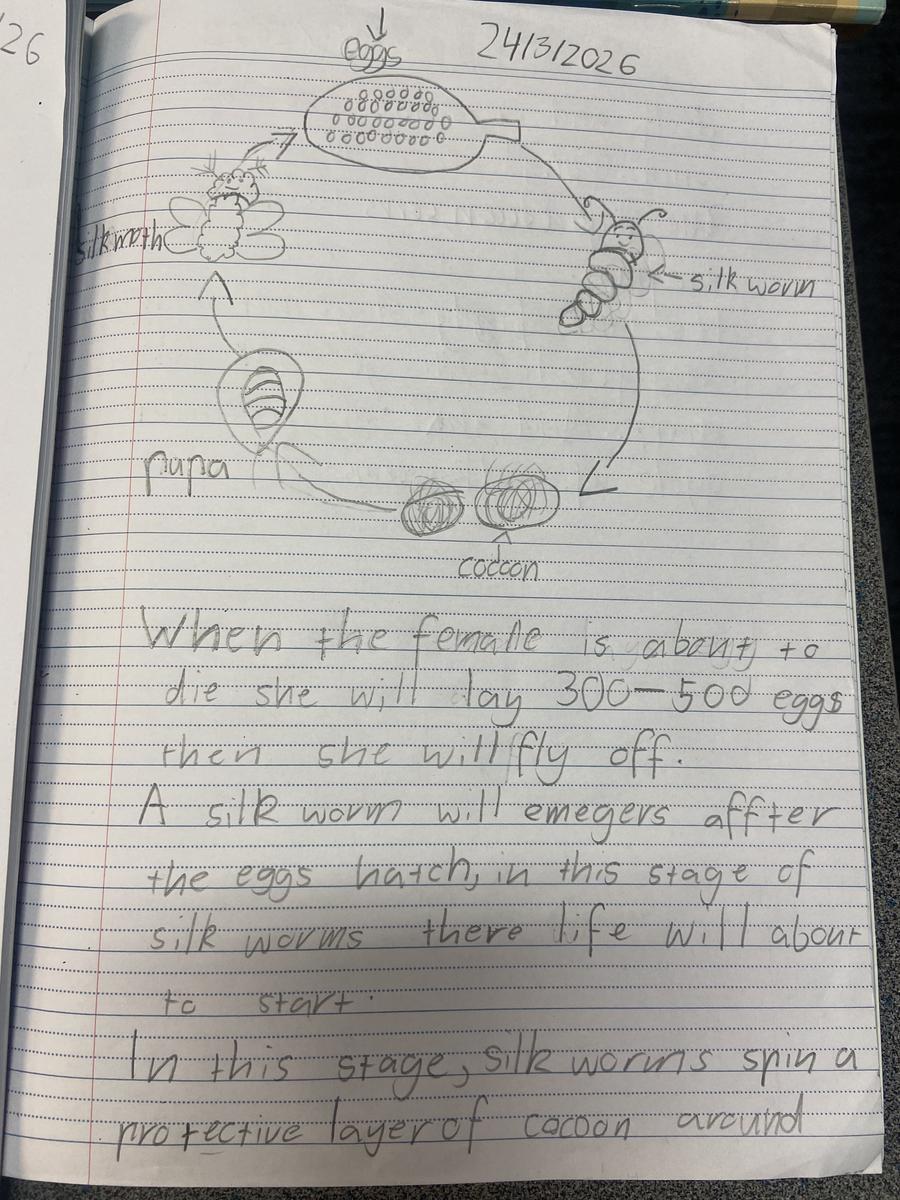 26
eggs
24/3/2026
silkmoth
silk worm
pupa
cocoon
When the female is about to
die she will lay 300-500 eggs
then she will fly off.
A silk worm will emegers affter
the eggs hatch, in this stage of
silk worms there life will about
to start.
In this stage, silk worms spin a
protective layer of cocoon around